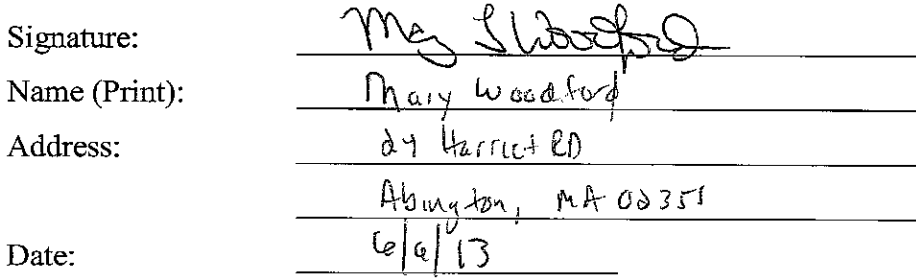 Signature: Mary S Woodford
Name (Print): Mary Woodford
Address: 24 Harriet RD
Abington, MA 02351
Date: 6/6/13